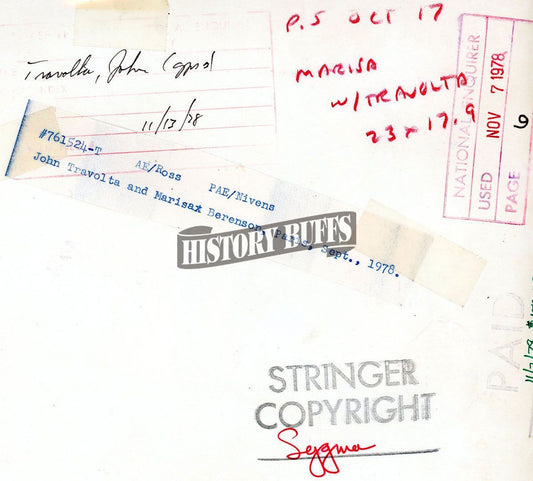 P.5 OCT 17
MARISA
W/TRAVOLTA
23 x 17.9
Travolta, John
11/13/78
#761524-T
AE/Ross PAE/Nivens
John Travolta and Marisax Berenson, Paris, Sept., 1978.
NATIONAL ENQUIRER
USED NOV 7 1978
PAGE 6
HISTORY BUFFS
PAID
STRINGER
COPYRIGHT
Sygma